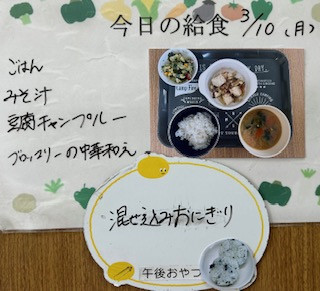 今日の給食 3/10 (月)
ごはん
みそ汁
豆腐チャンプルー
ブロッコリーの中華和え
混ぜ込みおにぎり
午後おやつ